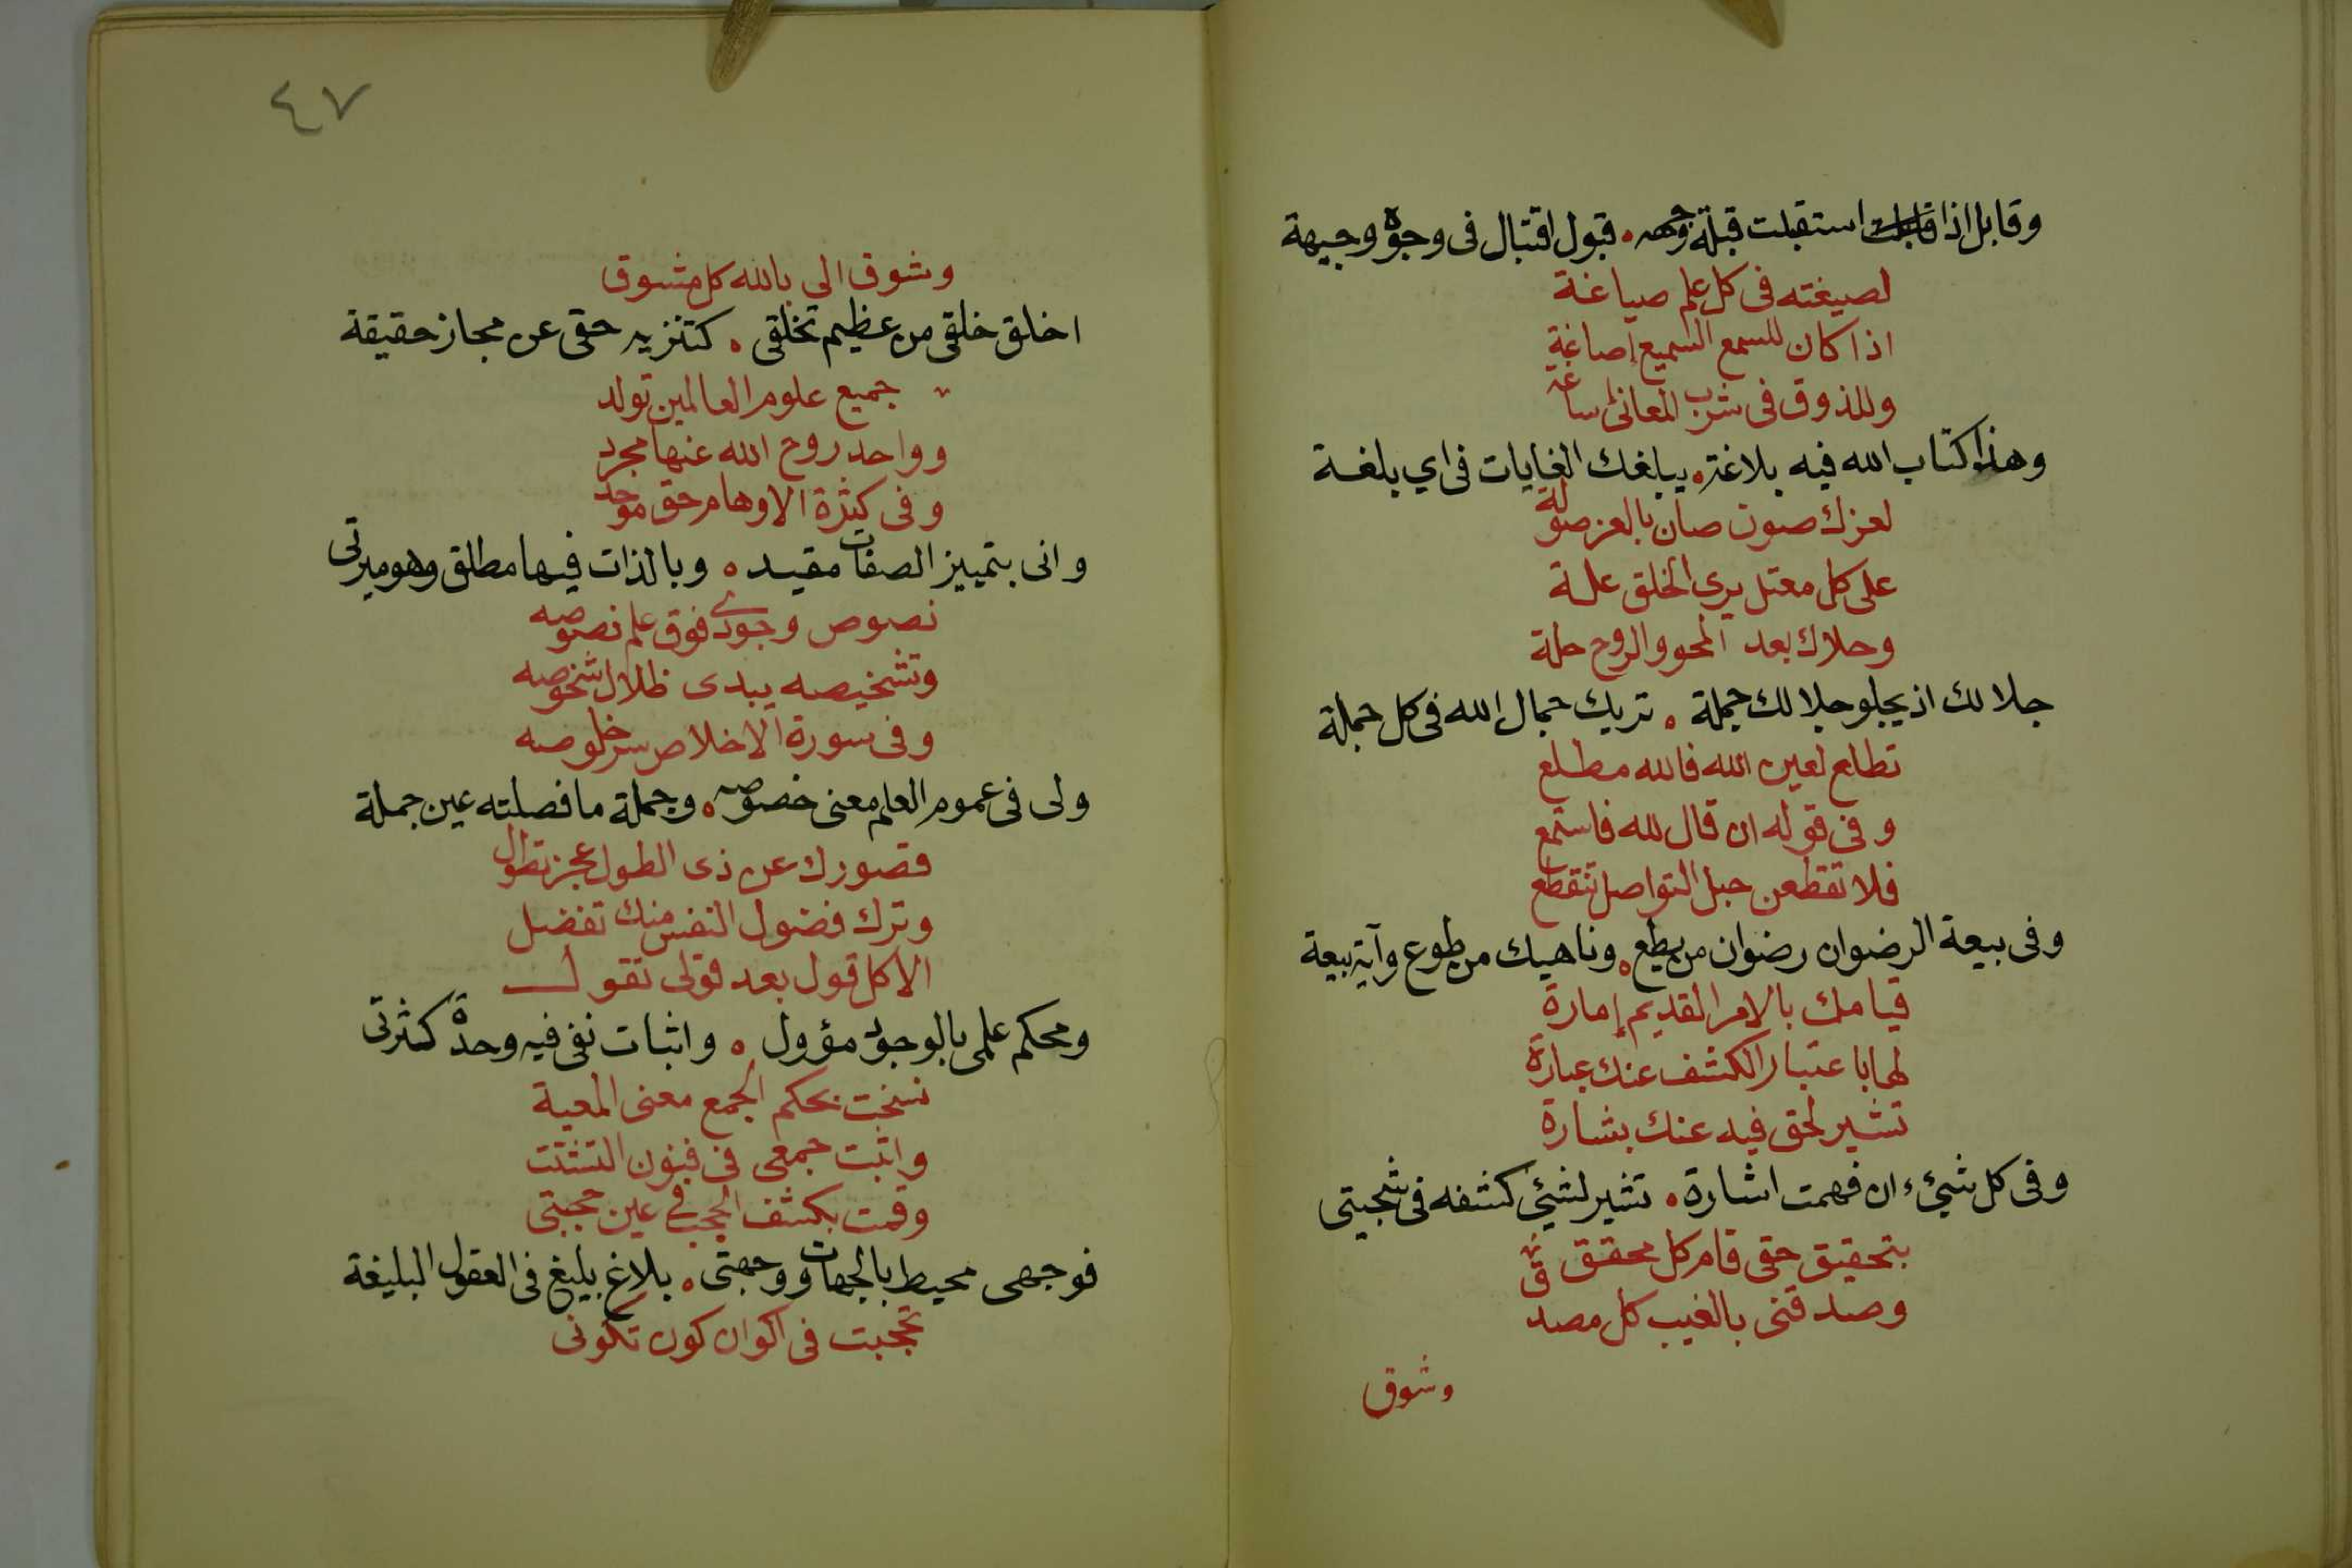 وقابل اذا استقبلت قبلة وجهه ۰ قبول اقتبال فى وجوه وجيهة
لصيغته فى كل علم صياغة
اذا كان للسمع السميع إصاغة
وللذوق فى شرب المعانى إساغة
وهذا كتاب الله فيه بلاغة ۰ يبلغك الغايات فى اي بلغة
لعزك صون صان بالعز صولة
على كل معتل يرى الخلق علة
وحلاك بعد المحو والروح حلة
جلالك اذ يجلو جلالك جملة ۰ تريك جمال الله فى كل جملة
تطلع لعين الله فالله مطلع
وفى قوله ان قال لله فاستمع
فلا تقطعن حبل التواصل تنقطع
وفى بيعة الرضوان رضوان من يطع ۰ وناهيك من طوع وآية بيعة
قيامك بالامر القديم إمارة
لها باعتبار الكشف عنك عبارة
تشير لحق فيه عنك بشارة
وفى كل شيء ان فهمت اشارة ۰ تشير لشيئ كشفه فى شجيتى
بتحقيق حقى قام كل محقق
وصدقنى بالغيب كل مصدق
وشوق
٤٧
وشوق الى بالله كل مشوق
اخلق خلقى من عظيم تخلقى ۰ كتنزيه حقى عن مجاز حقيقة
جميع علوم العالمين تولد
وواحد روح الله عنها مجرد
وفى كثرة الاوهام حق موحد
وانى بتمييز الصفات مقيد ۰ وبالذات فيها مطلق وهو ميزتى
نصوص وجودى فوق علم نصوصه
وتشخيصه يبدى ظلال شخوصه
وفى سورة الاخلاص سر خلوصه
ولى فى عموم العلم معنى خصوصه ۰ وجملة ما فصلته عين جملة
قصورك عن ذى الطول عجز تطول
وترك فضول النفس منك تفضل
الا كل قول بعد قولى تقول
ومحكم علمى بالوجود مؤول ۰ واثبات نفى فيه وحدة كثرتى
نسخت بحكم الجمع معنى المعية
واثبت جمعى فى فنون التشتت
وقمت بكشف الحجب فى عين حجبتى
فوجهى محيط بالجهات ووجهتى ۰ بلاغ بليغ فى العقول البليغة
تحجبت فى اكوان كون تكونى